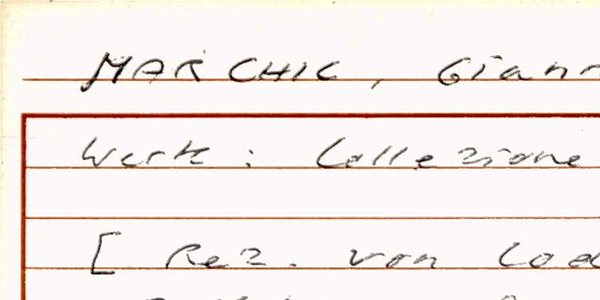 MARCHIC, Giann
Werk: Collezione
[ Rez. von Lod